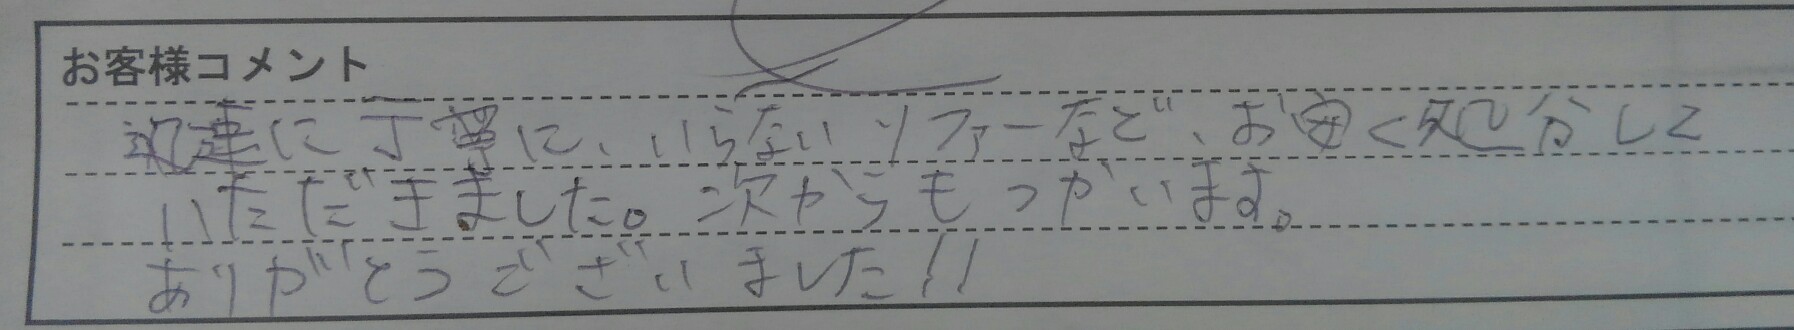 お客様コメント
迅速に丁寧に、いらないソファーなど、お安く処分して
いただきました。次からもつかいます。
ありがとうございました!!